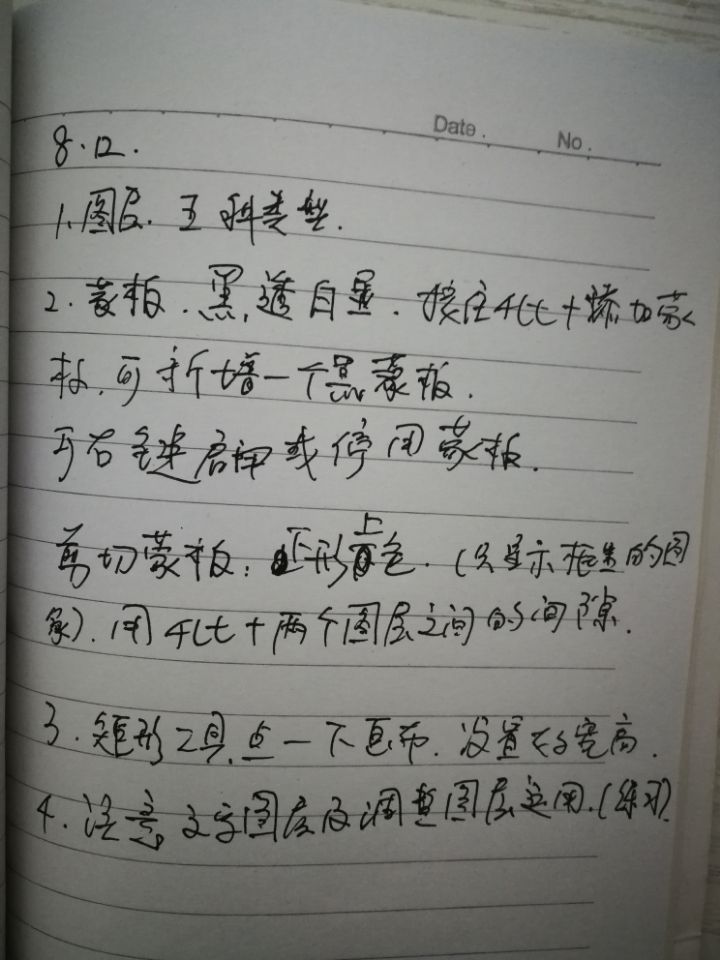 Date.
No.
8.12.
1.图层.五种类型.
2.蒙板.黑透白显.按住Alt+添加蒙
板,可新增一个黑蒙板.
可右键启用或停用蒙板.
剪切蒙板:下形上色.(只显示框里的图
象).用Alt+两个图层之间的间隙.
3.矩形工具,点一下画布.设置宽高.
4.注意文字图层及调整图层运用.(练习)